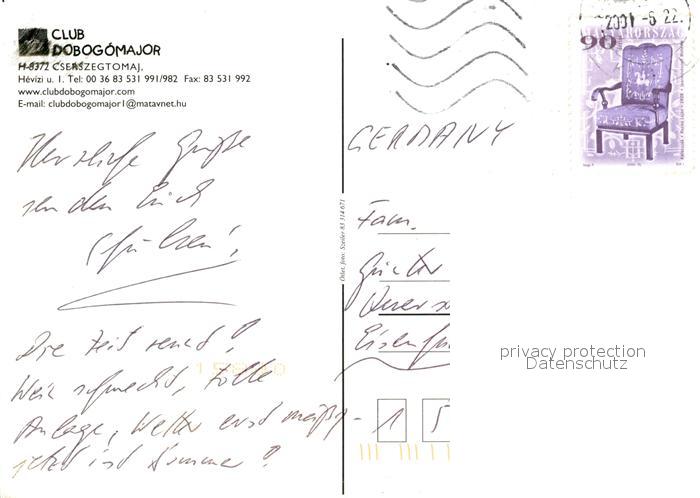 CLUB
DOBOGÓMAJOR
H-8372 CSERSZEGTOMAJ,
Hévízi u. 1. Tel: 00 36 83 531 991/982 Fax: 83 531 992
www.clubdobogomajor.com
E-mail: clubdobogomajor1@matavnet.hu
Herzliche Grüße
senden Euch
Die Zeit rennt!
Wein schmeckt, tolle
Anlage, Wetter erst mäßig -
jetzt ist Sommer!
Ötlet, foto: Szeiler 83 314 671
2001 -6 22.
90
MAGYARORSZÁG
GERMANY
Fam.
1 5
privacy protection
Datenschutz